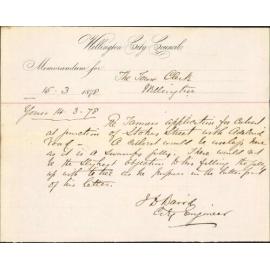 Wellington City Council
Memorandum for
The Town Clerk
Wellington
15 - 3 1878
Yours 14-3-78
Re Tanners application for Culvert
at junction of Stokes Street with Adelaide
Road - A culvert would be useless here
as it is a Swampy gully. There would not
be the slightest objection to his filling the gully
up with to the as he proposes in the latter part
of his letter.
J D Baird
City Engineer